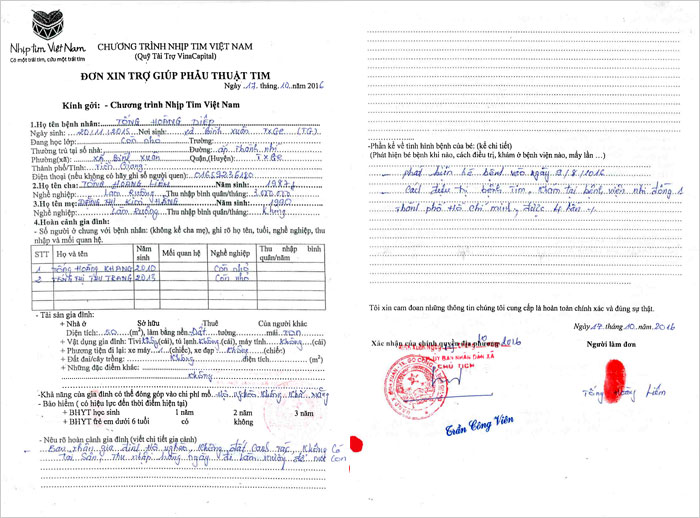 Nhịp tim Việt Nam
Có một trái tim, cứu một trái tim
CHƯƠNG TRÌNH NHỊP TIM VIỆT NAM
(Quỹ Tài Trợ VinaCapital)
ĐƠN XIN TRỢ GIÚP PHẪU THUẬT TIM
Ngày 17 tháng 10 năm 2016
Kính gởi: - Chương trình Nhịp Tim Việt Nam
1.Họ tên bệnh nhân: TỐNG HOÀNG DIỆP
Ngày sinh: 20/11/2015 Nơi sinh: xã Bình Xuân TXGC (TG)
Đang học lớp: Còn nhỏ Trường:
Thường trú tại số nhà: Đường:
Phường(xã): xã Bình Xuân Quận,(Huyện): TX GC
Thành phố/Tỉnh: Tiền Giang
Điện thoại (nếu không có hãy ghi số người quen)
2.Họ tên cha: TỐNG HOÀNG LIÊM Năm sinh: 1987
Nghề nghiệp: Làm Ruộng Thu nhập bình quân/tháng:
3.Họ tên mẹ: ĐẶNG THỊ KIM Năm sinh: 1990
Nghề nghiệp: Làm Ruộng Thu nhập bình quân/tháng: Không
4.Hoàn cảnh gia đình:
- Số người ở chung với bệnh nhân: (không kể cha mẹ), ghi rõ họ tên, tuổi, nghề nghiệp, thu
nhập và mối quan hệ.
STT Họ và tên Năm sinh Mối quan hệ Nghề nghiệp Thu nhập bình quân/năm
1 TỐNG HOÀNG KHANG 2010 Còn nhỏ
2 TỐNG THỊ THU TRANG 2015 Còn nhỏ
- Tài sản gia đình:
+ Nhà ở Sở hữu Thuê Của người khác
Diện tích: 50 (m2), làm bằng nền Đất tường mái
+ Vật dụng gia đình: Tivi (cái), tủ lạnh Không (cái), máy tính Không (cái)
+ Phương tiện đi lại: xe máy 1 (chiếc), xe đạp Không (chiếc)
+ Đất đai/cây trồng: Không diện tích: (m2)
+ Những đặc điểm khác:
Không
-Khả năng của gia đình có thể đóng góp vào chi phí mổ
- Bảo hiểm (có hiệu lực đến thời điểm hiện tại)
+ BHYT học sinh 1 năm 2 năm 3 năm
+ BHYT trẻ em dưới 6 tuổi có không
- Nêu rõ hoàn cảnh gia đình (viết chi tiết gia cảnh)
Bản thân gia đình Hộ nghèo, Không đất canh tác, Không Có
Tài Sản, Thu nhập hàng ngày
-Phần kể về tình hình bệnh của bé: (kể chi tiết)
(Phát hiện bé bệnh khi nào, cách điều trị, khám ở bệnh viện nào, mấy lần …)
phát hiện bé bệnh vào ngày 13/8/2016
Cách điều trị bệnh Tim, Khám tại bệnh viện nhi đồng 1
thành phố Hồ chí minh, được 4 lần
Tôi xin cam đoan những thông tin chúng tôi cung cấp là hoàn toàn chính xác và đúng sự thật.
Ngày 17 tháng 10 năm 2016
Xác nhận của chính quyền địa phương
Người làm đơn
TM.ỦY BAN NHÂN DÂN XÃ
CHỦ TỊCH
Trần Công Viên
Tống Hoàng Liêm